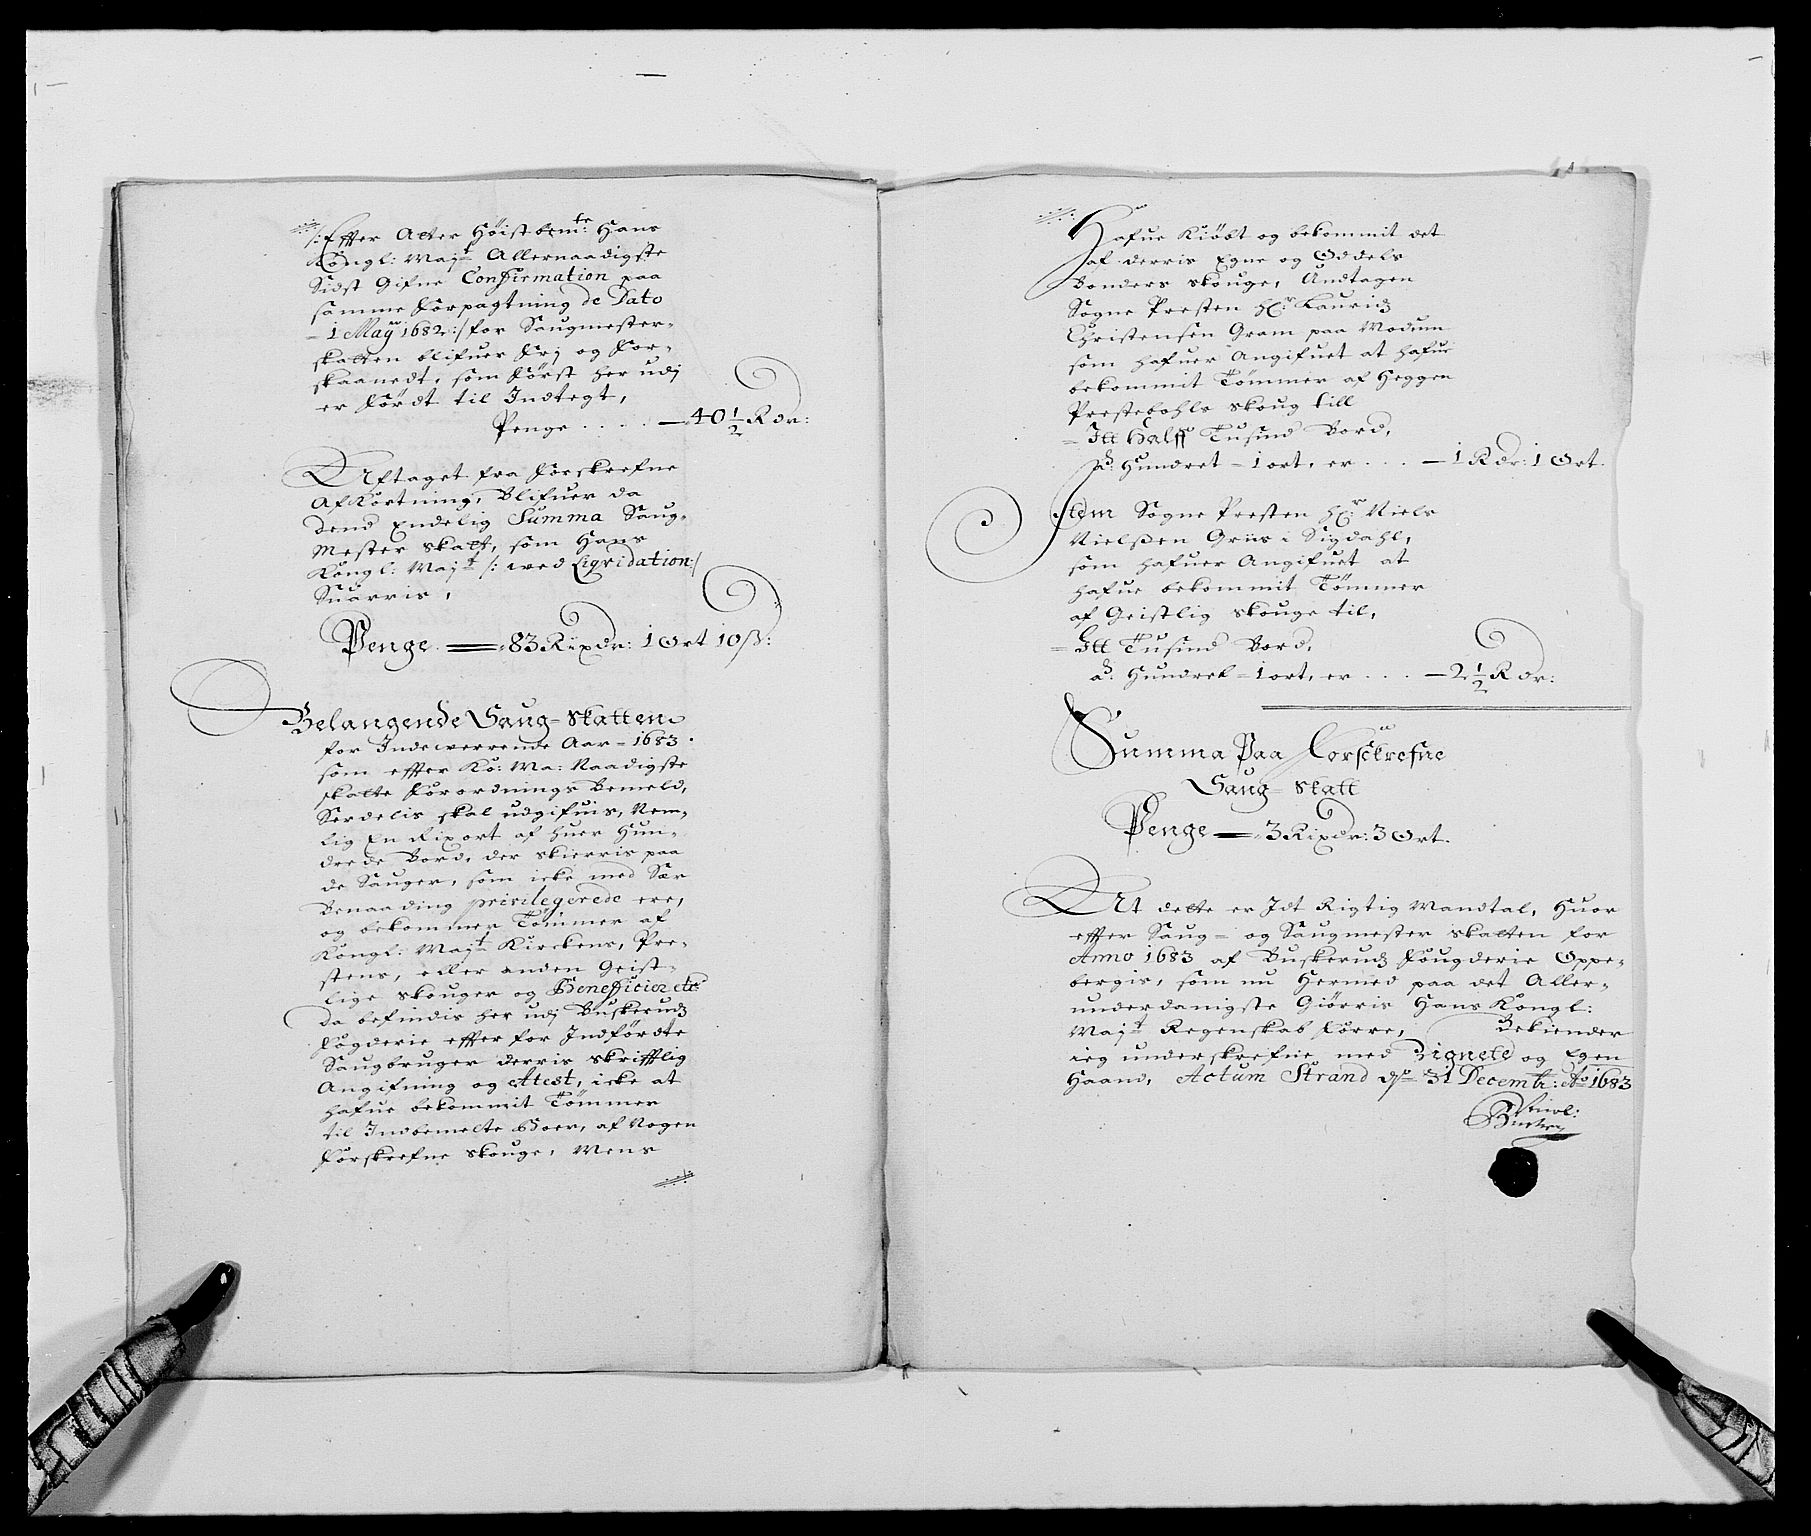 /: Effter Alter Höistbem:te Hans
Kongl: Maj:t Allernaadigste
Sidst Gifne Confirmation paa
samme Forpagtning de Dato
1 Maÿ 1682 :/ for Saugmester-
skatten blifuer Frj og For-
skaanedt, som först her udj
er fördt til Indtegt,
Penge . . . . — 40 1/2 Rdr:
Aftaget fra forskrefne
Afkortning, Blifuer da
dend Endelig Summa Saug-
Mester Skatt, som Hans
Kongl: Maj:t /: wed Liqvidation :/
Suarris,
Penge — 83 Rixdr: 1 Ort 10 ß:
Belangende Saug-Skatten
for Indewerrende Aar - 1683.
som effter Ko: Ma: Naadigste
skatte Forordnings Bemeld,
Serdelis skal udgifuis, Nem-
lig En Rixort af huer Hun-
drede Bord, der skierris paa
de Sauger, som icke med Sær
Benaading privilegerede ere,
og bekommer Tömmer af
Kongl: Maj:t Kirckens, Pre-
stens, eller anden Geist-
lige skouger og Beneficier etc
Da befindis her udj Buskeruds
Fogderie effter for Indfördte
Saugbruger derris skrifftlig
Angifning og Attest, icke at
hafue bekommit Tömmer
til Indbemelte Boer, af Nogen
Forskrefne skouge, Mens
Hafue Kiöbt og bekommit det
af derris Egne og Oddels
Bonders skouge, Undtagen
Sogne Presten Hr: Lauridz
Christensen Gram paa Modum
som hafuer Angifuet at hafue
bekommit Tömmer af Heggen
Prestebohls skoug till
Itt Halff Tusind Bord,
a. Hundret - 1 ort, er . . . — 1 Rdr: 1 Ort.
Item Sogne Presten Hr: Niels
Nielßen Griis i Sigdahl,
som hafuer Angifuet at
hafue bekommit Tömmer
af Geistlig skouge til,
Itt Tusind Bord,
a. Hundret - 1 ort, er . . . — 2 1/2 Rdr:
Summa Paa Forschrefne
Saug-Skatt
Penge — 3 Rixdr: 3 Ort.
At dette er Idt Rigtig Mandtal, Huor
effter Saug- og Saugmester skatten for
Anno 1683 af Buskeruds Fougderie Oppe-
bergis, som nu Hermed paa det Aller-
underdanigste Giörris Hans Kongl:
Maj:t Regenskab Forre, Bekiender
ieg underskrefne med Zignete og Egen
Haand, Actum Strand d: 31 Decembr: Ao 1683